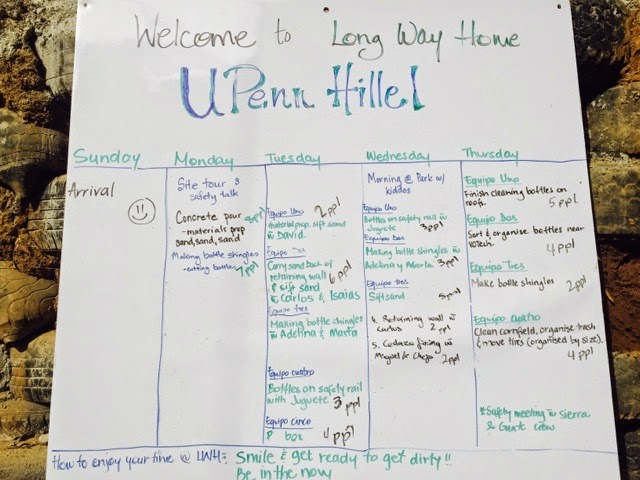 Welcome to Long Way Home
UPenn Hillel
Sunday
Arrival
Monday
Site tour &
safety talk
Concrete pour
- materials prep
sand, sand, sand
Making bottle shingles
- cutting bottles 7ppl
Tuesday
Equipo Uno 2 ppl
material prep. sift sand
w David.
Equipo Dos
Carry sand back of
retaining wall 6 ppl
& sift sand
w Carlos & Isaias
Equipo tres
Making bottle shingles
w Adelina & Marta
Equipo cuatro
Bottles on safety rail
with Juguete 3 ppl
Equipo cinco
P box 4 ppl
Wednesday
Morning @ Park w/
kiddos
Equipo Uno
Bottles on safety rail w
Juguete 3ppl
Equipo Dos
Making bottle shingles w
Adelina y Marta 3ppl
Equipo tres
Sift sand 5ppl
4. Retaining wall w
Carlos 2 ppl
5. fixing w
Miguel & 2ppl
Thursday
Equipo Uno
Finish cleaning bottles on
roofs. 5 ppl
Equipo Dos
Sort & organise bottles near
4 ppl
Equipo Tres
Make bottle shingles 2 ppl
Equipo cuatro
Clean cornfield, organise trash
& move tires (organised by size).
4 ppl
*Safety meeting w Sierra
& Guate crew
How to enjoy your time @ LWH: Smile & get ready to get dirty!!
Be in the now